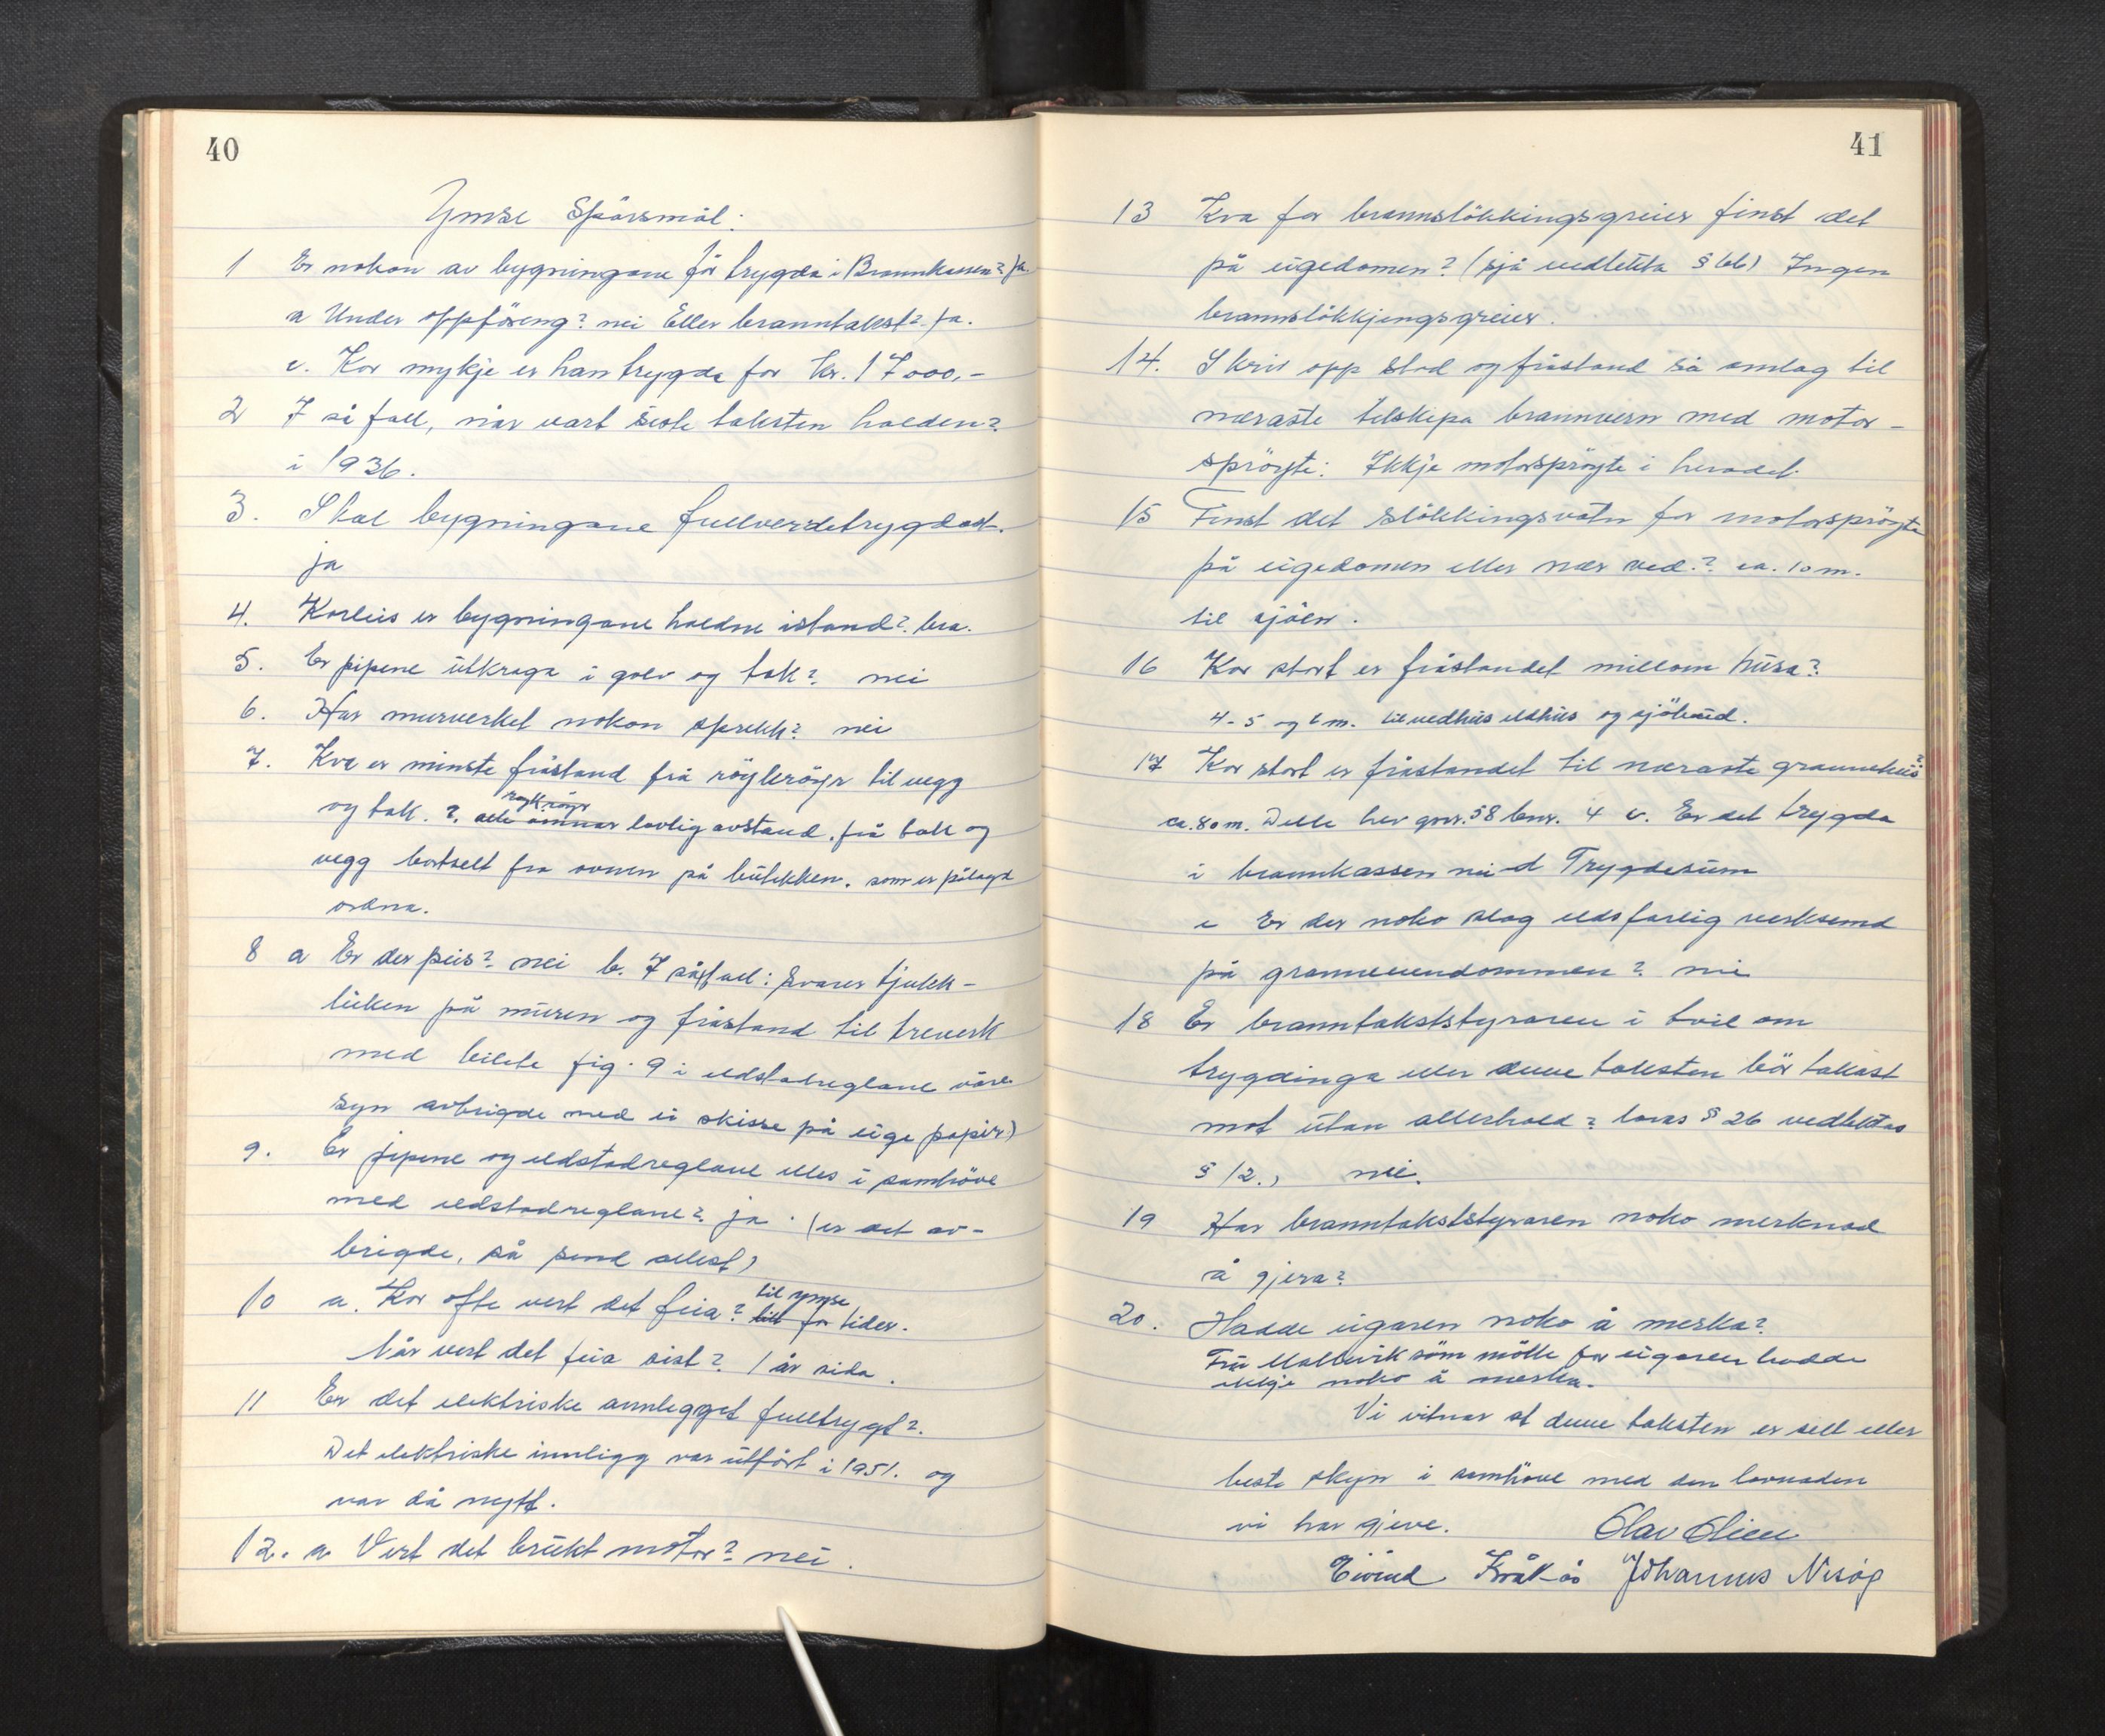 40
Ymse Spörsmål:
1 Er nokon av bygningane för trygda i Brannkassen? ja.
a Under oppföreng? nei Eller branntakst? ja.
c. Kor mykje er han trygda for kr. 17000,-
2 I så fall, når vart siste taksten halden?
i 1936.
3. Skal bygningane fullverdetrygdast.
ja
4. Korleis er bygningane haldne istand? bra.
5. Er pipene utkraga i golv og tak? nei
6. Har murverket nokon sprekk? nei
7. Kva er minste fråstand frå röykröyr til vegg
røykrøyr
og tak.? alle omnar lovlig avstand. frå tak og
vegg bortsett fra ovnen på butikken. som er pålagd
ordna.
8 a Er der peis? nei b. I såfall: Svarer tjukk-
leiken på muren og fråstand til treverk
med bilete fig. 9 i eldstadreglane våre
syn avbrigde med ei skisse på eige papir)
9. Er pipene og eldstadreglane elles i samhöve
med eldstadreglane? ja. (er det av-
brigde, så send attest)
til ymse
10 a. Kor ofte vert det feia? litt for tider.
Når vert det feia sist? 1 år sida.
11 Er det elektriske annlegget fulltrygt?.
Det elektriske innligg var utfört i 1951. og
var då nytt.
12. a Vert det brukt motor? nei.
41
13 Kva for brannslökkingsgreier finst det
på eigedomen? (sjå vedtekta § 66) Ingen
brannslökkjingsgreier.
14. Skriv opp stad og fråstand så omlag til
næraste tilskipa brannvern med motor-
spröyte: Ikkje motorspröyte i heradet.
15 Finst det slökkingsvatn for motorspröyte
på eigedomen eller nær ved.? ca. 10 m.
til sjöen.
16 Kor stort er fråstandet millom husa?
4-5 og 6 m. til vedhus eldhus og sjöbud.
17 Kor stort er fråstandet til næraste grannehus?
ca. 80 m. Dette hev gnr. 58 bnr. 4 c. Er det trygda
i brannkassen nei d Trygdesum
e Er der noko slag eldsfarlig verksemd
på granneeiendommen? nei
18 Er branntakststyraren i tvil om
trygdinga eller denne taksten bör takast
mot utan atterhald? lovas § 26 vedtektas
§ 12., nei.
19 Har branntakststyraren noko merknad
å gjera?
20. Hadde eigaren noko å merka?
Fru som mötte for eigaren hadde
ikkje noko å merka.
Vi vitnar at denne taksten er sett etter
beste skyn i samhöve med den lovnaden
vi har gjeve. Olav
Eivind Johannes